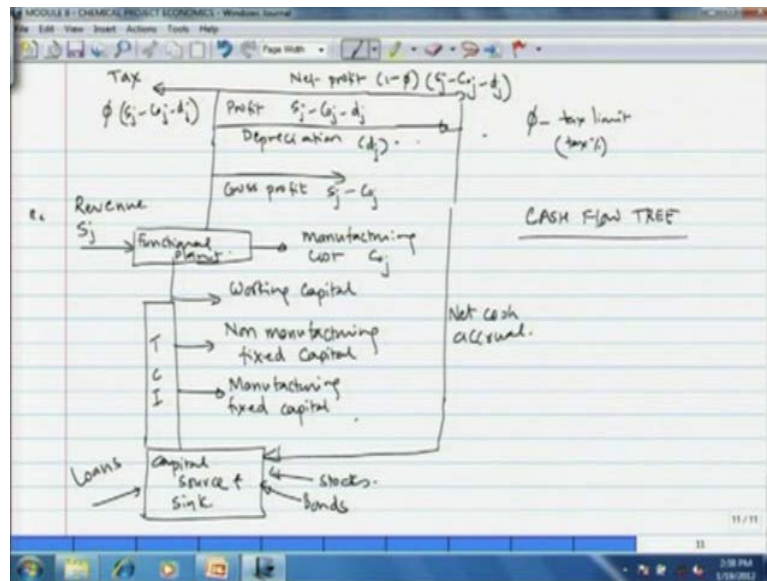 MODULE 8 - CHEMICAL PROJECT ECONOMICS - Windows Journal
File Edit View Insert Actions Tools Help
Page Width
Tax
Net profit (1-ϕ) (sj-coj-dj)
ϕ (sj-coj-dj)
Profit sj-coj-dj
Depreciation (dj)
ϕ - tax limit
(tax %)
Gross profit sj - coj
Revenue
sj
CASH FLOW TREE
Functional
plant
manufacturing
cost coj
Working Capital
Net cash
accrual.
Non manufacturing
fixed Capital
T
C
I
Manufacturing
fixed capital
Loans
Capital
source &
sink
stocks.
Bonds
11 / 11
11
2:58 PM
1/19/2012